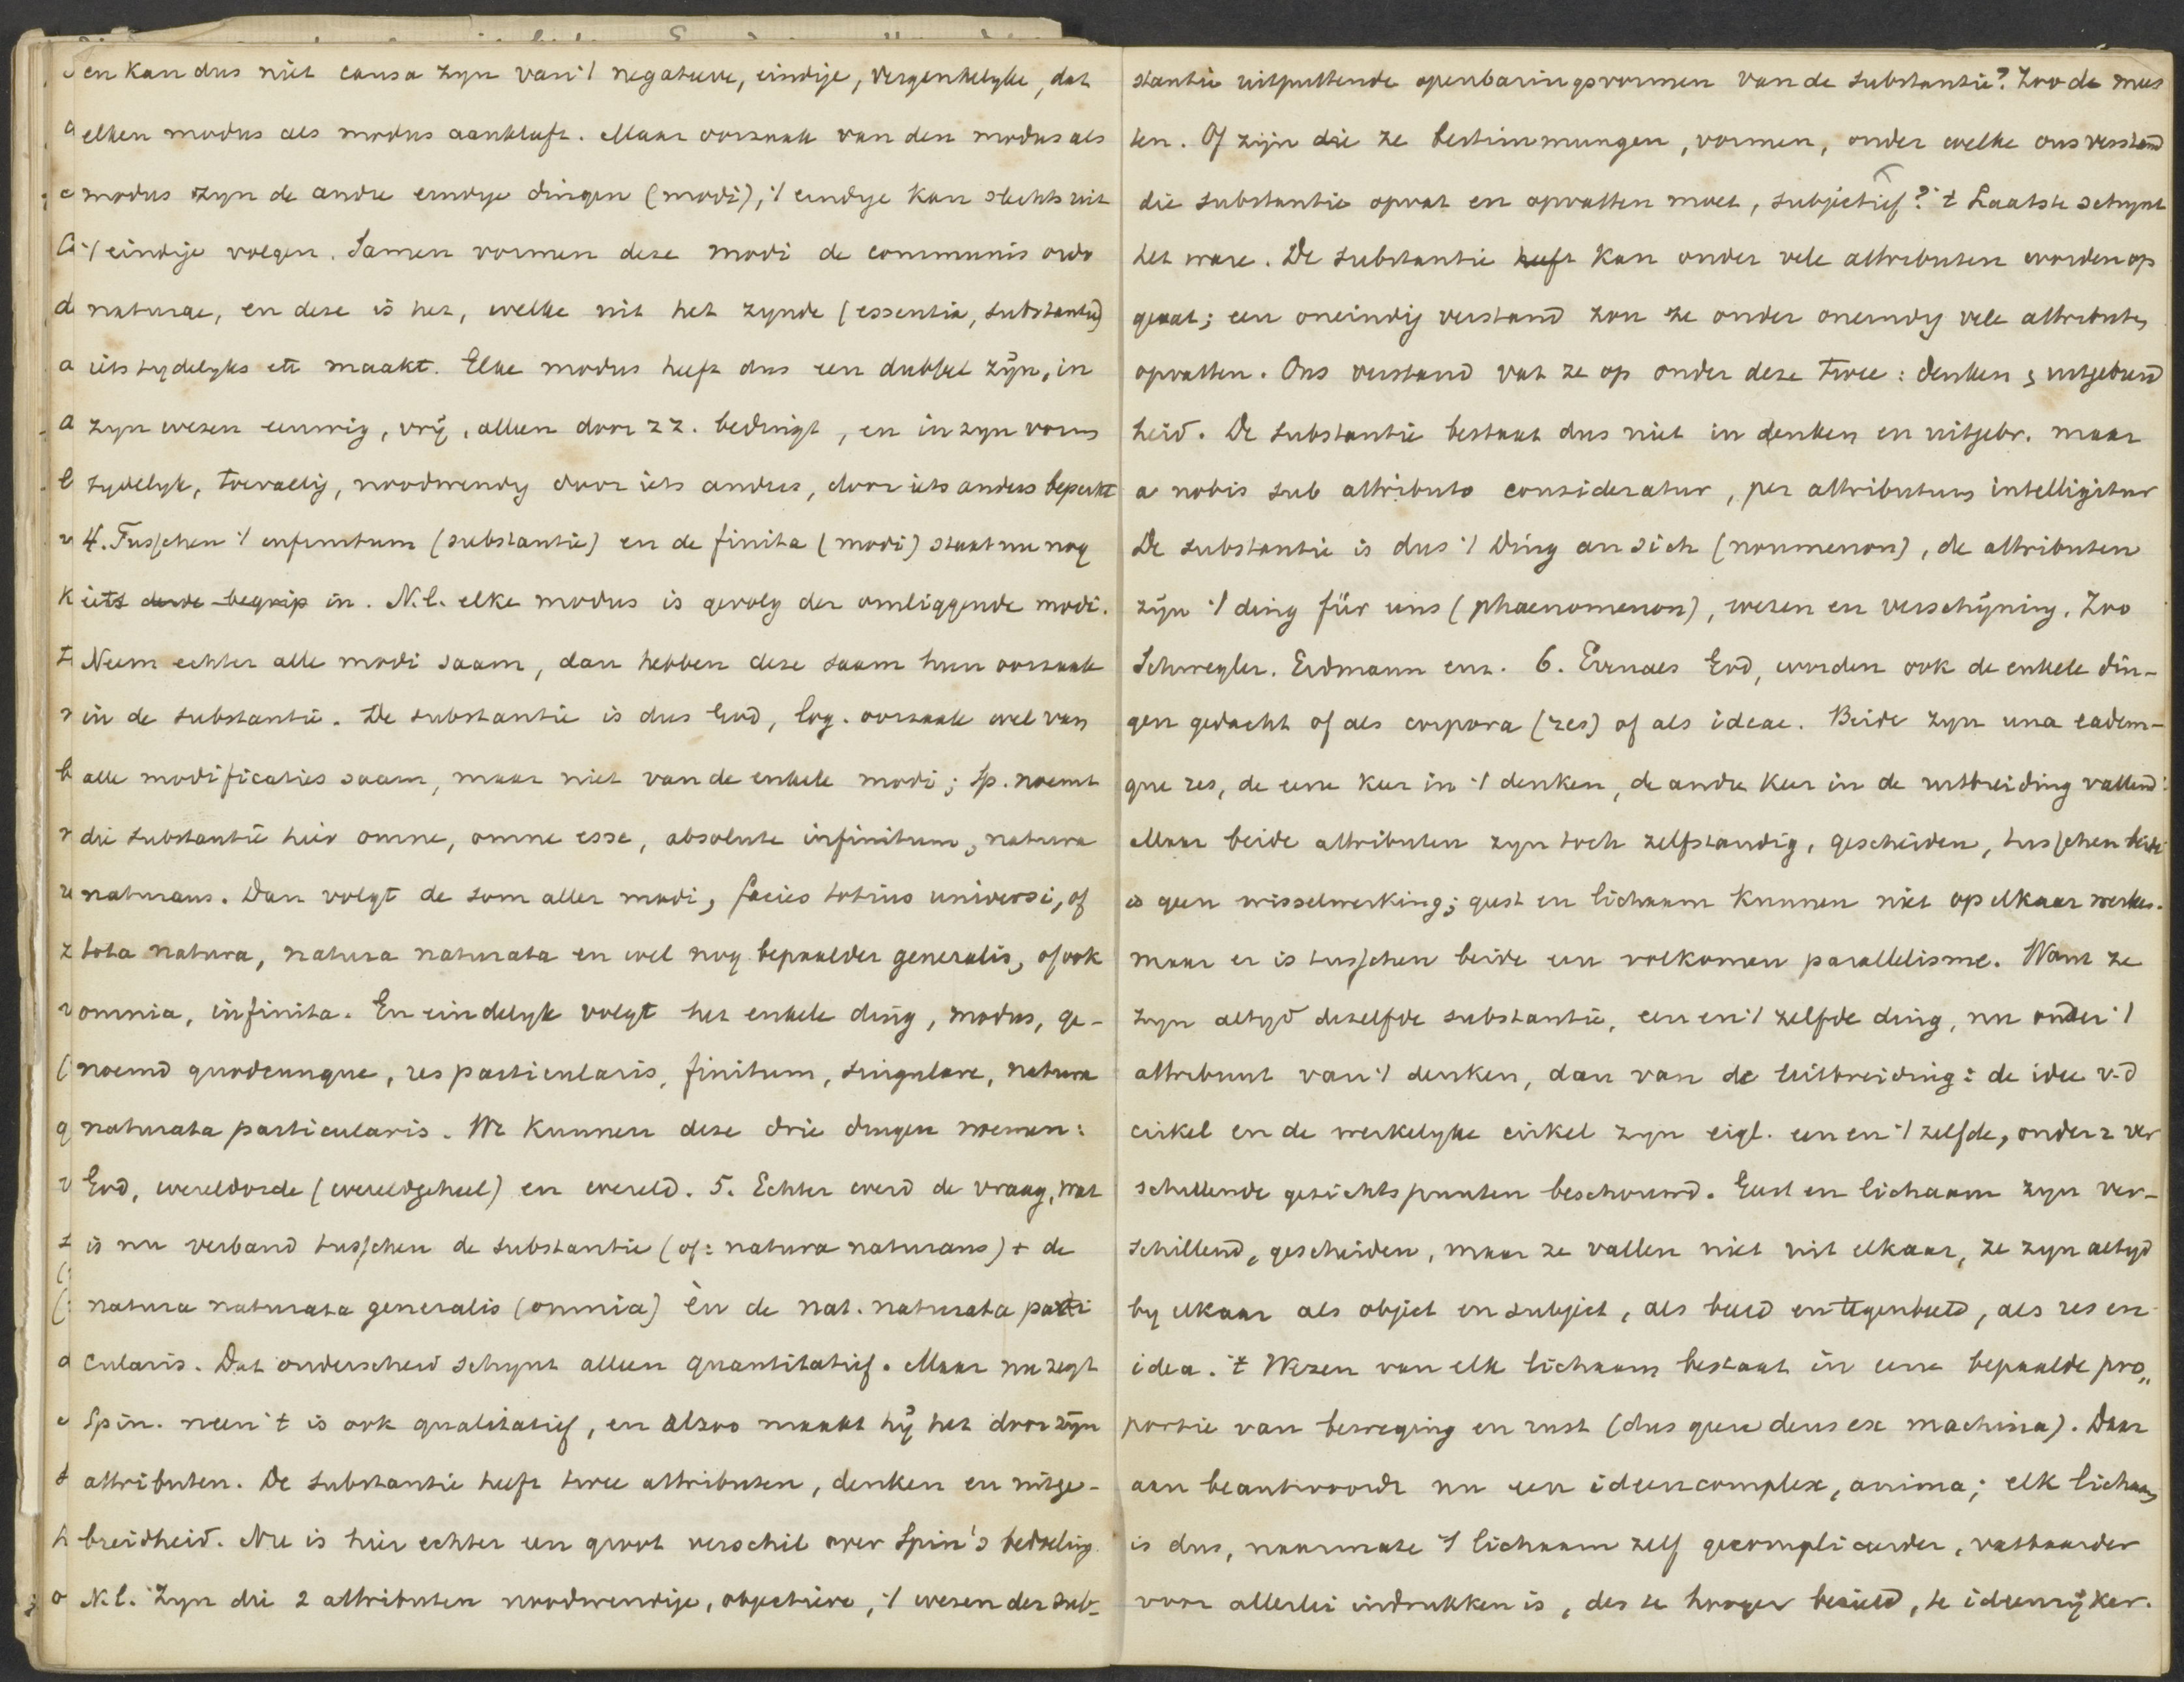 en kan dus niet causa zyn van 't negatieve, eindige, vergankelyke, dat
elken modus als modus aankleeft. Maar oorzaak van den modus als
modus zyn de andre eindige dingen (modi), 't eindige kan slechts uit
't eindige volgen. Samen vormen deze modi de communis ordo
naturae, en deze is het, welke uit het zynde (essentia, substantie)
iets tydelyks etc maakt. Elke modus heeft dus een dubbel zijn, in
zyn wezen eeuwig, vrij, alleen door z z. bedingt, en in zyn vorm
tydelyk, toevallig, noodwendig door iets anders, door iets anders beperkt
4. Tusschen 't infinitum (substantie) en de finita (modi) staat nu nog
iets derde begrip in. N.l. elke modus is gevolg der omliggende modi.
Neem echter alle modi saam, dan hebben deze saam hun oorzaak
in de substantie. De substantie is dus God, log. oorzaak wel van
alle modificaties saam, maar niet van de enkele modi; Sp. noemt
die substantie hier omne, omne esse, absolute infinitum, natura
naturans. Dan volgt de som aller modi, facies totius universi, of
tota natura, natura naturata en wel nog bepaalder generalis, of ook
omnia, infinita. En eindelyk volgt het enkele ding, modus, ge-
noemd quodcunque, res particularis, finitum, singulare, natura
naturata particularis. We kunnen deze drie dingen noemen:
God, wereldorde (wereldgeheel) en wereld. 5. Echter werd de vraag, wat
is nu verband tusschen de substantie (of: natura naturans) + de
natura naturata generalis (omnia) èn de nat. naturata parti
cularis. Dat onderscheid schynt alleen quantitatief. Maar nu zegt
Spin. neen 't is ook qualitatief, en alzoo maakt hij het door zijn
attributen. De substantie heeft twee attributen, denken en uitge-
breidheid. Nu is hier echter een groot verschil over Spin's bedoeling.
N.l. Zyn die 2 attributen noodwendige, objectieve, 't wezen der sub-
stantie uitputtende openbaringsvormen van de substantie? Zoo de mees
ten. Of zijn die ze bestimmungen, vormen, onder welke ons verstand
die substantie opvat en opvatten moet, subjectief? 't Laatste schynt
het ware. De substantie heeft kan onder vele attributen worden op
gevat; een oneindig verstand zou ze onder oneindig vele attributen
opvatten. Ons verstand vat ze op onder deze twee: denken & uitgebreid
heid. De substantie bestaat dus niet in denken en uitgebr. maar
a nobis sub attributo consideratur, per attributum intelligitur
De substantie is dus 't Ding an sich (noumenon), de attributen
zijn 't ding für uns (phaenomenon), wezen en verschijning. Zoo
Schwegler. Erdmann enz. 6. Evenals God, worden ook de enkele din-
gen gedacht of als corpora (res) of als ideae. Beide zyn una eadem-
que res, de eene keer in 't denken, de andre keer in de uitbreiding vallend.
Maar beide attributen zyn toch zelfstandig, gescheiden, tusschen beide
is geen wisselwerking; geest en lichaam kunnen niet op elkaar werken.
maar er is tusschen beide een volkomen parallelisme. Want ze
zyn altyd dezelfde substantie, een en 't zelfde ding, nu onder 't
attribuut van 't denken, dan van de uitbreiding: de idee v.d
cirkel en de werkelyke cirkel zyn eigl. een en 't zelfde, onder 2 ver
schillende gezichtspunten beschouwd. Geest en lichaam zyn ver-
schillend, gescheiden, maar ze vallen niet uit elkaar, ze zyn altyd
by elkaar als object en subject, als beeld en tegenbeeld, als res en
idea. 't Wezen van elk lichaam bestaat in eene bepaalde pro„
portie van beweging en rust (dus geen deus ex machina). Daar
aan beantwoordt nu een ideencomplex, anima; elk lichaam
is dus, naarmate 't lichaam zelf gecompliceerder, vatbaarder
voor allerlei indrukken is, des te hooger bezield, te ideenrijker.